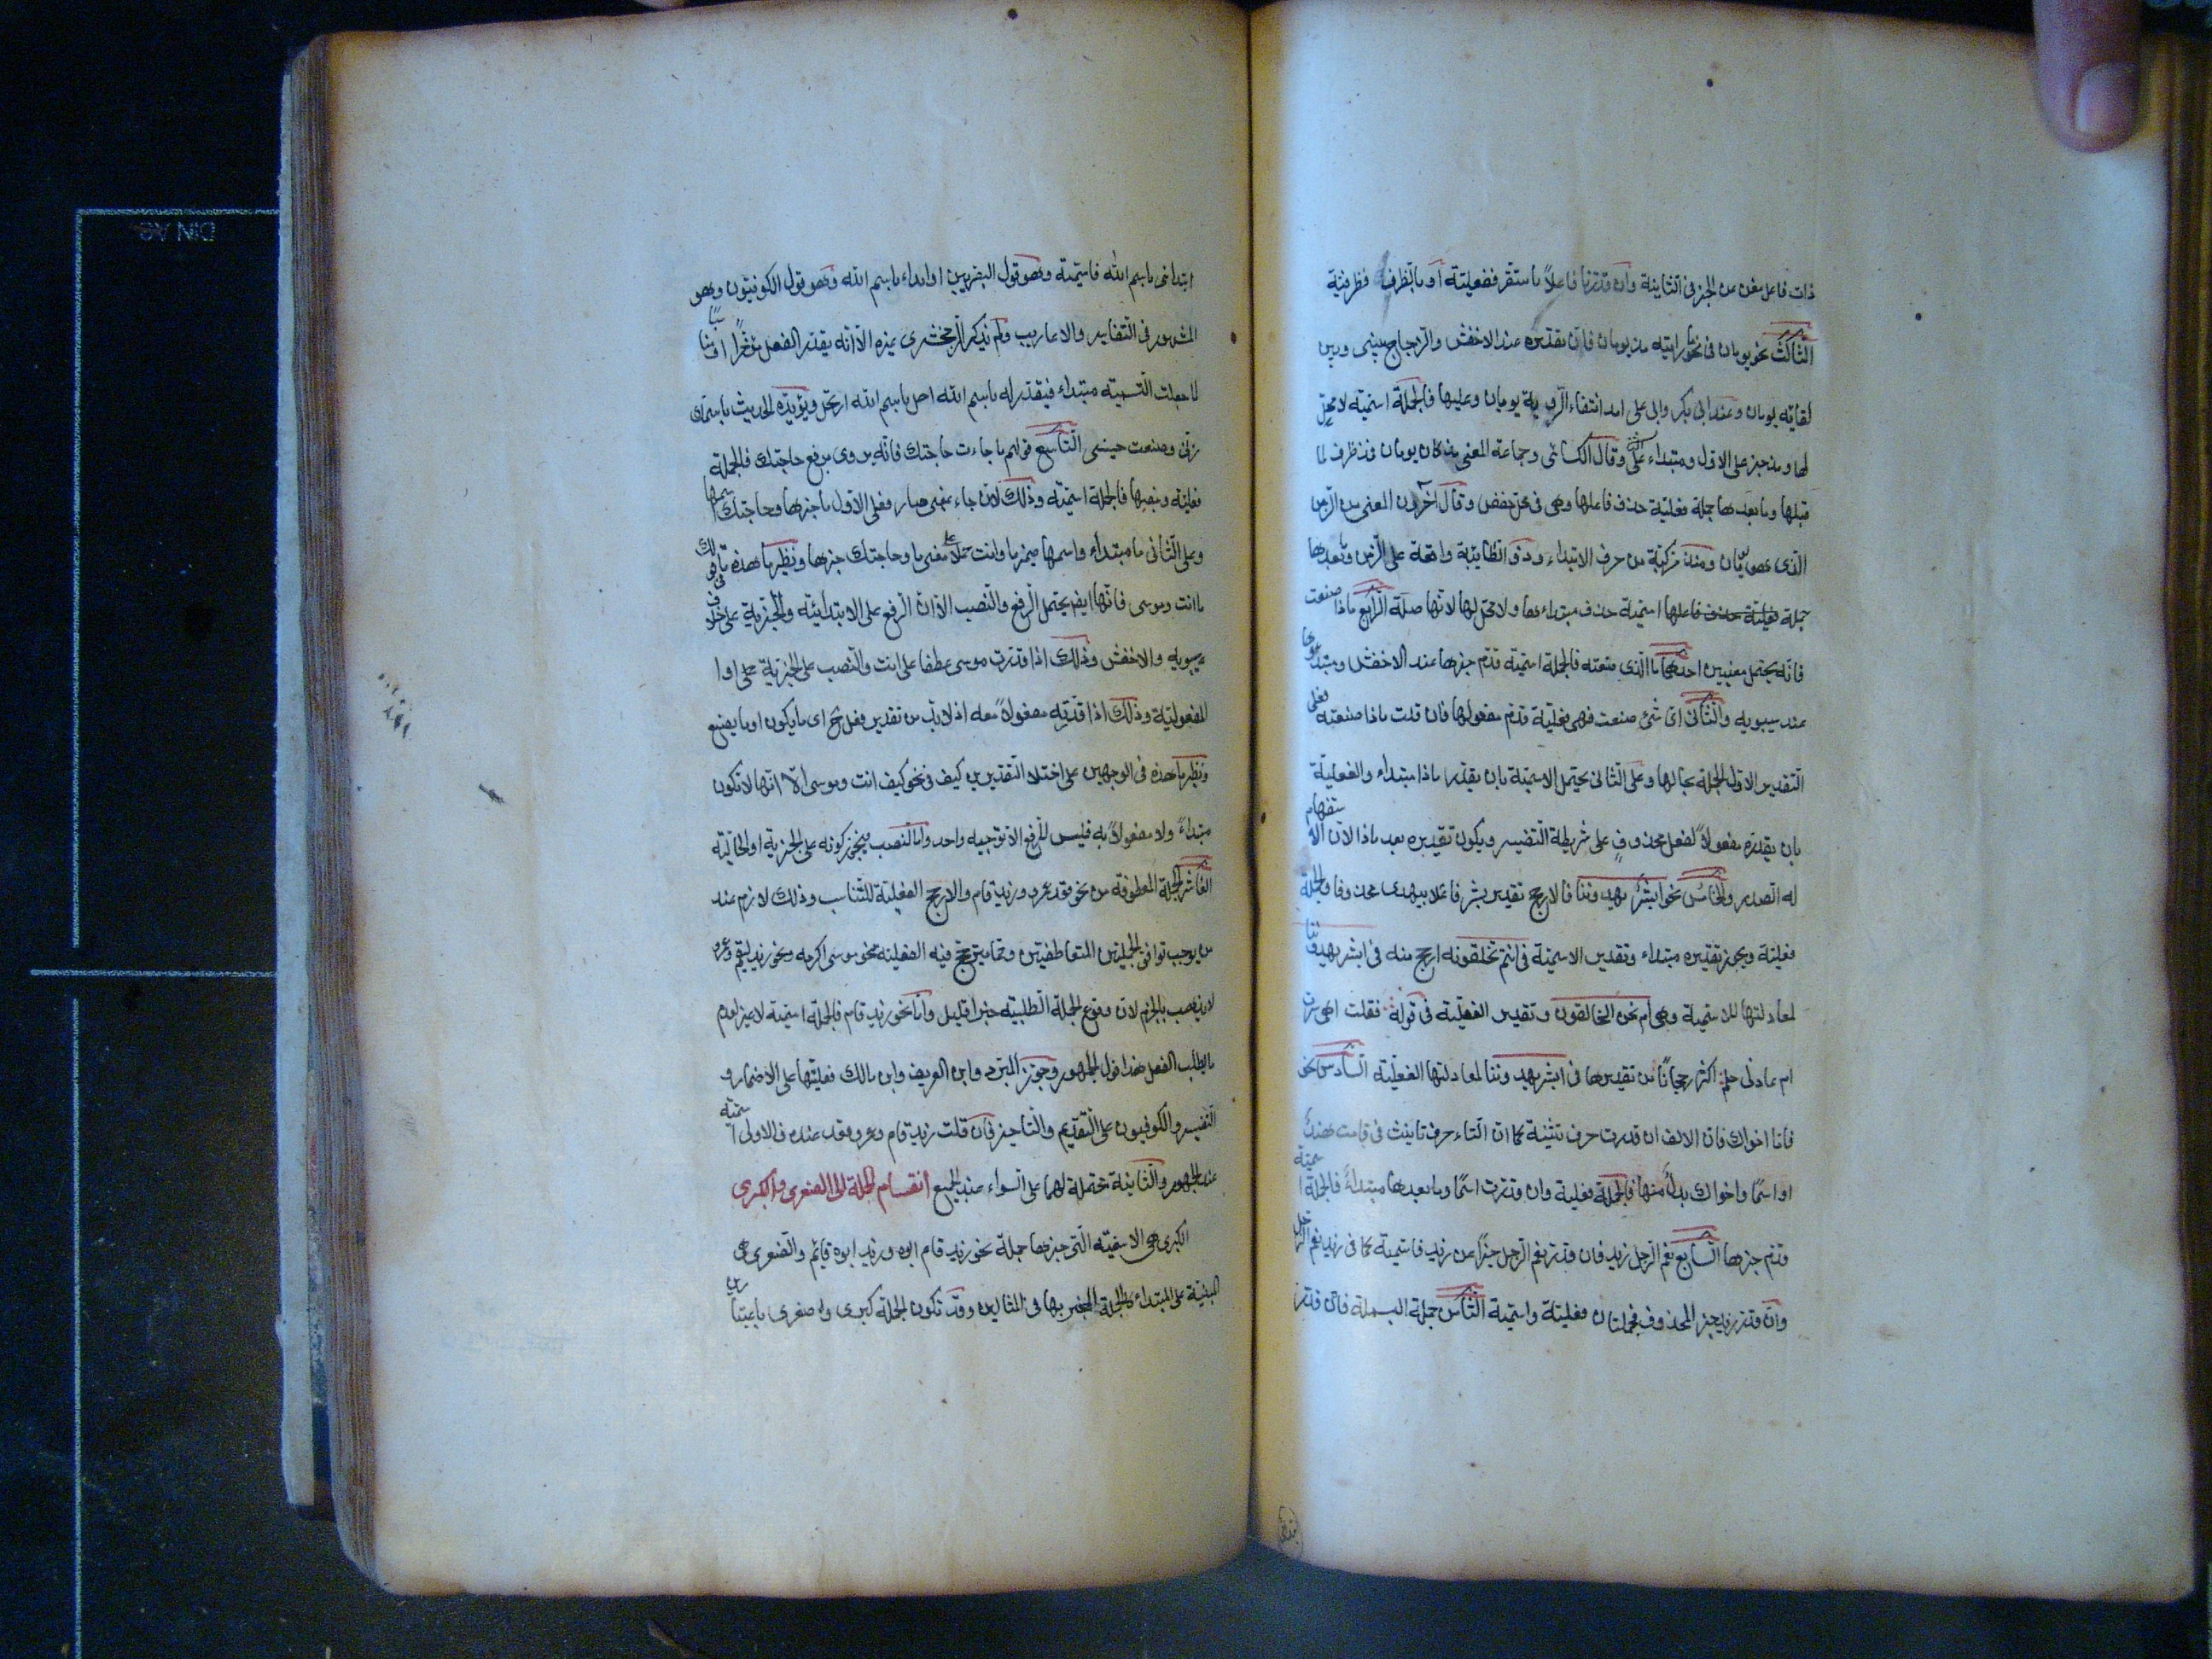 ذات فاعل مغن عن الخبر في الثانية وان قدرتها فاعلاً باستقر ففعلية او بالظرف فظرفية
الثالث نحو يومان في نحو ما رايته مذ يومان فان تقديره عند الاخفش والزجاج بيني وبين
لقائه يومان وعند ابي بكر وابي علي امد انتفاء الروية يومان وعليها فالجملة اسمية لا محل
لها ومذ خبر على الاول ومبتداء على الثاني وقال الكسائي وجماعة المعنى مذ كان يومان فمذ ظرف لما
قبلها وما بعدها جملة فعلية حذف فاعلها وهي في محل خفض وقال آخرون المعنى من الزمن
الذي هو يومان ومنذ مركبة من حرف الابتداء وذو الطائية واقعة على الزمن وما بعدها
جملة فعلية حذف فاعلها اسمية حذف مبتداءها ولا محل لها لانها صلة الرابع ماذا صنعت
فانه يحتمل معنيين احدهما ما الذي صنعته فالجملة اسمية قدم خبرها عند الاخفش ومبتدءوها
عند سيبويه والثاني اي شيء صنعت فهي فعلية قدم مفعولها فان قلت ماذا صنعته فعلى
التقدير الاول الجملة بحالها وعلى الثاني يحتمل الاسمية بان يقدر ماذا مبتداء والفعلية
بان يقدره مفعولاً لفعل محذوف على شريطة التفسير ويكون تقديره بعد ماذا لان الاستفهام
له الصدر والخامس نحو ابشر يهدوننا فالارجح تقدير بشر فاعلا بيهدى محذوفا والجملة
فعلية ويجوز تقديره مبتداء وتقدير الاسمية في أانتم تخلقونه ارجح منه في ابشر يهدوننا
لمعادلتها للاسمية وهي ام نحن الخالقون وتقدير الفعلية في قوله فقلت اهي سرت
ام عادني حلم اكثر رجحاناً من تقديرها في ابشر يهدوننا لمعادلتها الفعلية السادس نحو
قاما اخواك فان الالف ان قدرت حرف تثنية كما ان التاء حرف تانيث في قامت هند
او اسمًا واخواك بدلاً منها فالجملة فعلية وان قدرت اسمًا وما بعدها مبتدأ فالجملة اسمية
قدم خبرها السابع نعم الرجل زيد فان قدر نعم الرجل خبراً عن زيد فاسمية كما في زيد نعم الرجل
وان قدر زيد خبر المحذوف فجملتان فعلية واسمية الثامن جملة البسملة فان قدر
ابتدائي باسم الله فاسمية وهو قول البصريين او ابداء باسم الله وهو قول الكوفيون وهو
المشهور في التفاسير والاعاريب ولم يذكر الزمخشري غيره الا انه يقدر الفعل مؤخراً ومناسبًا
لما جعلت التسمية مبتداء فيقدر له باسم الله احل باسم الله ارتحل ويؤيده الحديث باسمك
ربي وضعت جنبي التاسع قولهم ما جاءت حاجتك فانه يروى برفع حاجتك فالجملة
فعلية وبنصبها فالجملة اسمية وذلك لان جاء بمعنى صار فعلى الاول ما خبرها وحاجتك اسمها
وعلى الثاني ما مبتداء واسمها ضمير ما وانت حملا على معنى ما وحاجتك خبرها ونظير ما هذه ما في قولك
ما انت وموسى فانها ايضا يحتمل الرفع والنصب الا ان الرفع على الابتدائية والخبرية على خلاف
سيبويه والاخفش وذلك اذا قدرت موسى عطفا على انت والنصب على الخبرية على او ا
المفعولية وذلك اذا قدرته مفعولاً معه اذ لا بد من تقدير فعل ح اي ما يكون او ما يصنع
ونظير ما هذه في الوجهين على اختلاف التقديرين كيف في نحو كيف انت وموسى الا انها لا تكون
مبتداءً ولا مفعولاً به فليس للرفع الا توجيه واحد واما النصب فيجوز كونه على الخبرية او الحالية
العاشر الجملة المعطوفة من نحو قعد عمرو وزيد قام والارجح الفعلية للتناسب وذلك لازم عند
من يوجب توافق الجملتين المتعاطفتين ومما يترجح فيه الفعلية نحو موسى اكرمه ونحو زيد ليقم وعمرو
لا يذهب بالجزم لان وقوع الجملة الطلبية خبرا قليل واما نحو زيد قام فالجملة اسمية لا غير لعدم
ما يطلب الفعل هذا قول الجمهور وجوز المبرد وابن العريف وابن مالك فعليتها على الاضمار و
التفسير والكوفيون على التقديم والتاخير فان قلت زيد قام وعمرو قعد عنده فالاولى اسمية
عند الجمهور والثانية محتملة لهما على السواء عند الجميع انقسام الجملة الى الصغرى والكبرى
الكبرى هي الاسمية التي خبرها جملة نحو زيد قام ابوه وزيد ابوه قائم والصغرى هي
المبنية على المبتداء كالجملة المخبر بها في المثالين وقد تكون الجملة كبرى وصغرى باعتبارين